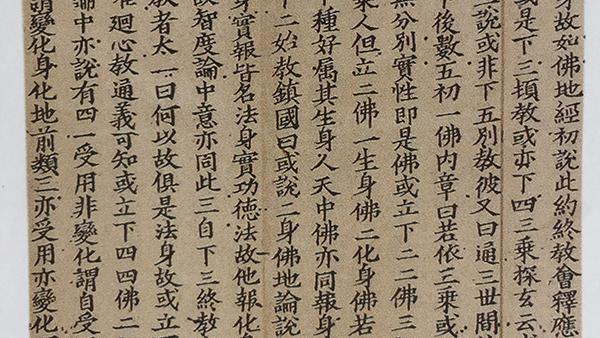 身故如佛地經初說此約終教會釋應
或是下三頓教或亦下四三乘探玄云
說或非下五別教彼又曰通三世間
下後數五初一佛内章曰若依三乘或
無分別實性即是佛或立下二二佛三
乘人但立二佛一生身佛二化身佛若
十種好属其生身人天中佛亦同報身
下二始教鎮國曰或說二身佛地論說
身實報皆名法身實功德法故他報化
故智度論中意亦同此三自下三終教
教者太一曰何以故俱是法身故或立
唯迴心教通義可知或立下四四佛二
論中亦說有四一受用非變化謂自受
謂變化身化地前類三亦受用亦變化